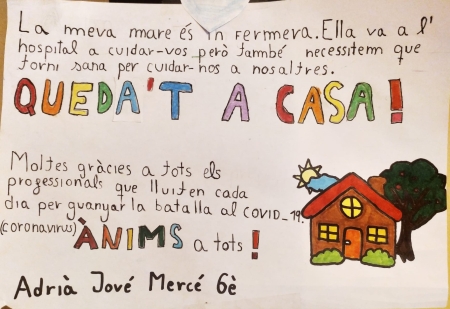 La meva mare és infermera. Ella va a l'
hospital a cuidar-vos però també necessitem que
torni sana per cuidar-nos a nosaltres.
QUEDA'T A CASA!
Moltes gràcies a tots els
professionals que lluiten cada
dia per guanyar la batalla al COVID_19.
(coronavirus) ÀNIMS a tots!
Adrià Jové Mercé 6è